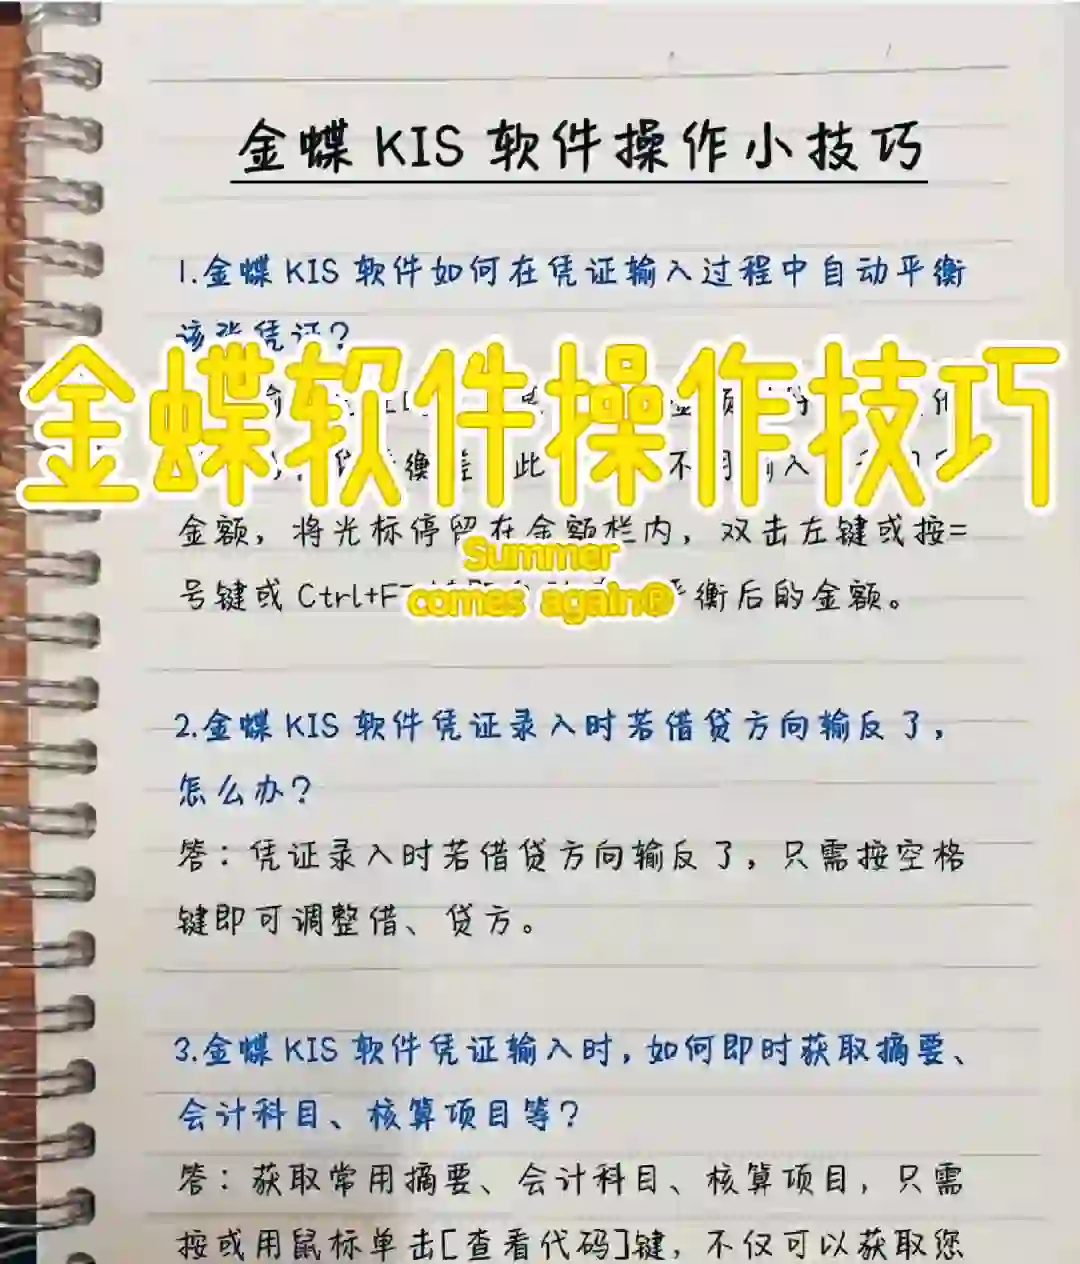 金蝶 KIS 软件操作小技巧
1.金蝶 KIS 软件如何在凭证输入过程中自动平衡
该张凭证?
金蝶软件操作技巧
金额，将光标停留在金额栏内，双击左键或按=
Summer
号键或 Ctrl+F
comes again®
平衡后的金额。
2.金蝶 KIS 软件凭证录入时若借贷方向输反了，
怎么办?
答：凭证录入时若借贷方向输反了，只需按空格
键即可调整借、贷方。
3.金蝶 KIS 软件凭证输入时，如何即时获取摘要、
会计科目、核算项目等?
答：获取常用摘要、会计科目、核算项目，只需
按或用鼠标单击[查看代码]键，不仅可以获取您